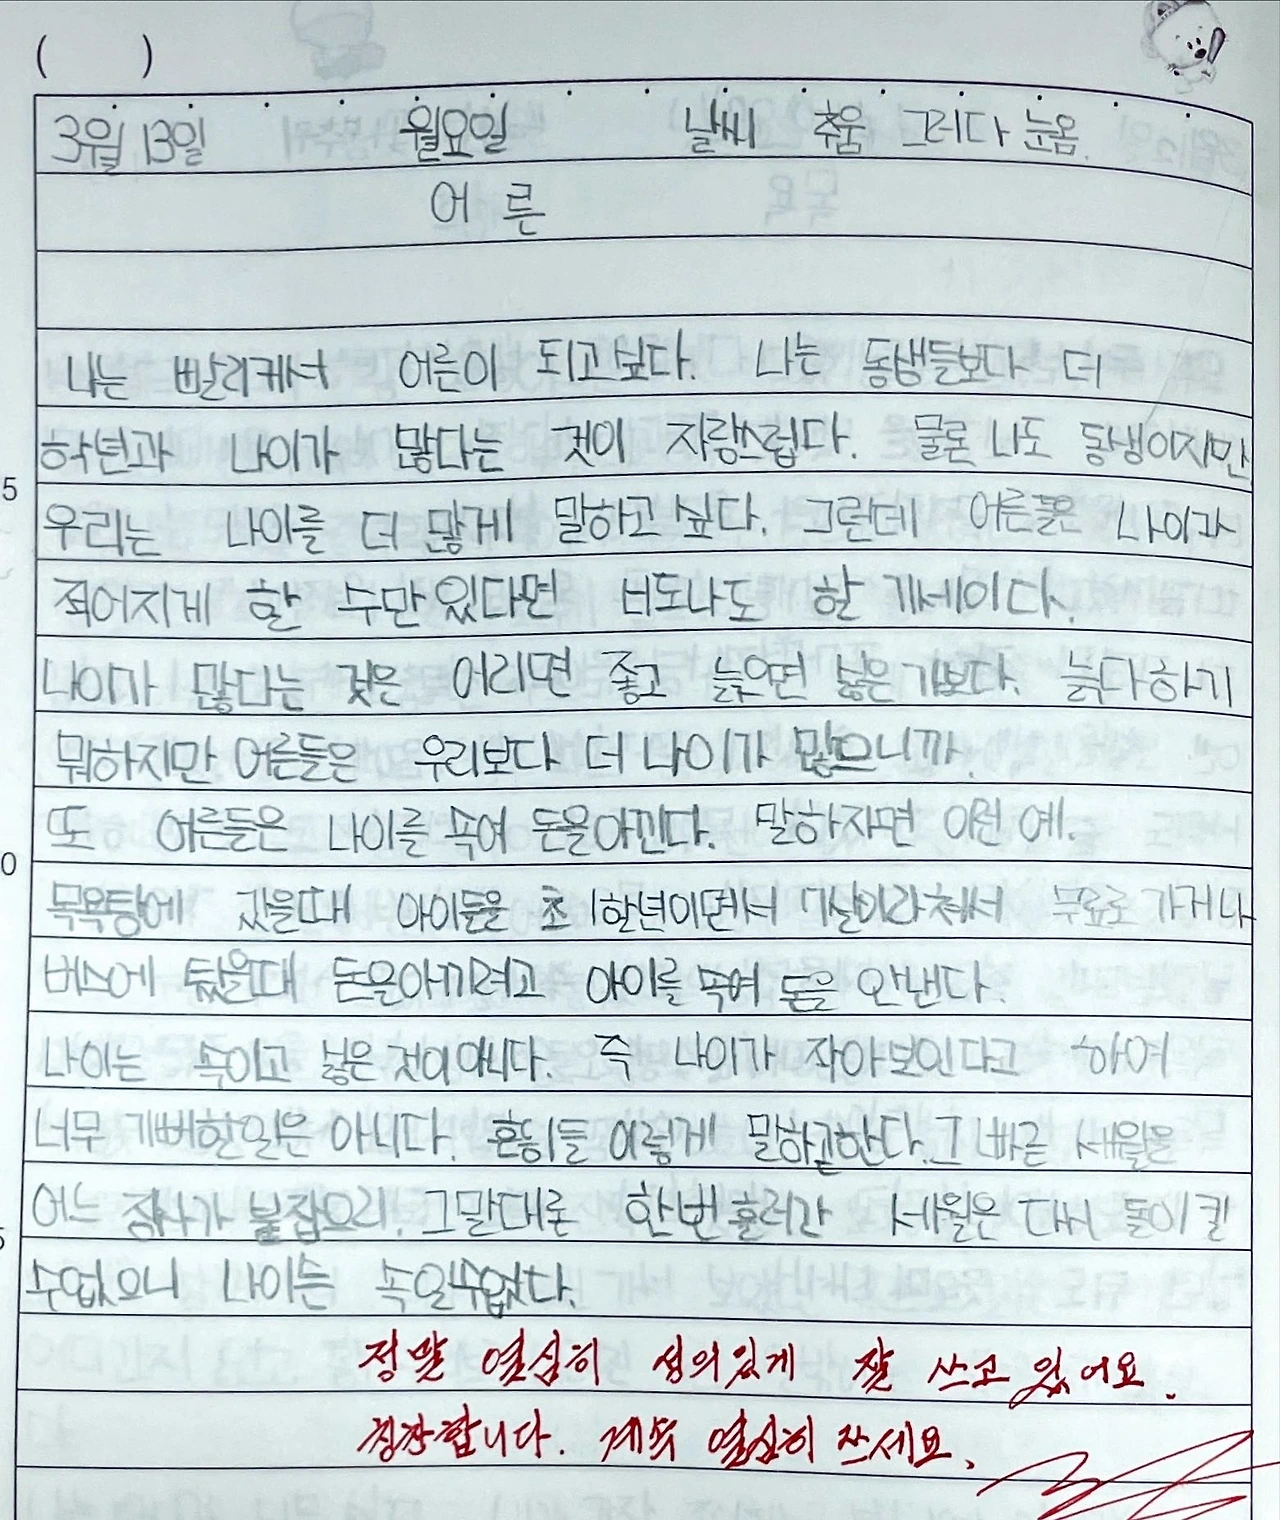 (      )
3월 13일 월요일 날씨 추움 그러다 눈옴.
어른
나는 빨리커서 어른이 되고싶다. 나는 동생들보다 더
학년과 나이가 많다는 것이 자랑스럽다. 물론 나도 동생이지만
5
우리는 나이를 더 많게 말하고 싶다. 그런데 어른들은 나이가
적어지게 할 수만있다면 너도나도 할 기세이다.
나이가 많다는 것은 어리면 좋고 늙으면 싫은가보다. 늙다하기
뭐하지만, 어른들은 우리보다 더 나이가 많으니까.
또 어른들은 나이를 속여 돈을아낀다. 말하자면 이런 예.
0
목욕탕에 갔을때 아이들은 초 1학년이면서 7살이라쳐서 무료로 가거나
버스에 탔을때 돈을아끼려고 아이를 속여 돈을 안낸다.
나이는 속이고 싶은것이 아니다. 즉 나이가 작아보인다고 하여
너무 기뻐할일은 아니다. 흔히들 이렇게 말하곤한다. 그 빠른 세월을
어느 장사가 붙잡으리. 그말대로 한번 흘러간 세월은 다시 돌이킬
5
수없으니 나이는 속일수없다.
정말 열심히 성의있게 잘 쓰고 있어요.
칭찬합니다. 계속 열심히 쓰세요.